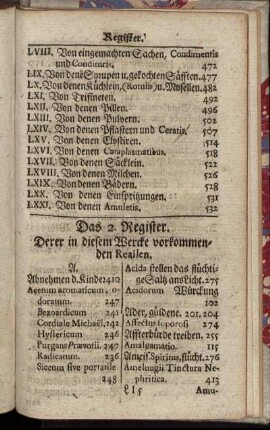 Register.
LVIII. Von eingemachten Sachen, Condimentis
und Condituris. 472
LIX. Von denē Syrupen u. gekochten Säfften. 477
LX. Von denen Küchlein, (Rotulis) u. Morsellen. 482
LXI. Von Trisineten. 492
LXII. Von denen Pillen. 496
LXIII. Von denen Pulvern. 502
LXIV. Von denen Pflastern und Ceratis. 507
LXV. Von denen Clystiren. 514
LXVI. Von denen Cataplasmatibus. 518
LXVII. Von denen Säcklein. 522
LXVIII. Von denen Milchen. 526
LXIX. Von denen Bädern. 528
LXX. Von denen Einsprizungen. 531
LXXI. Von denen Amuletis. 532
Das 2. Register.
Derer in diesem Wercke vorkommen-
den Realien.
A.
Abnehmen d. Kinder 410
Agetum aromaticum o-
doratum. 247
Bezoardicum 241
Cordiale Michaël. 242
Hystericum 246
Purgans Prævotii. 247
Radicatum. 236
Siccum sive portatile
248
Acida stellen das flüchti-
ge Saltz ans Licht. 275
Acidorum Würckung
102
Ader, güldene. 201. 204
Affectus soporosi 274
Affterbürde treiben. 255
Amalgamatio. 115
Ameis-Spiritus, flücht. 276
Amelungii Tinctura Ne-
phritica. 413
Ll 5 Amu-